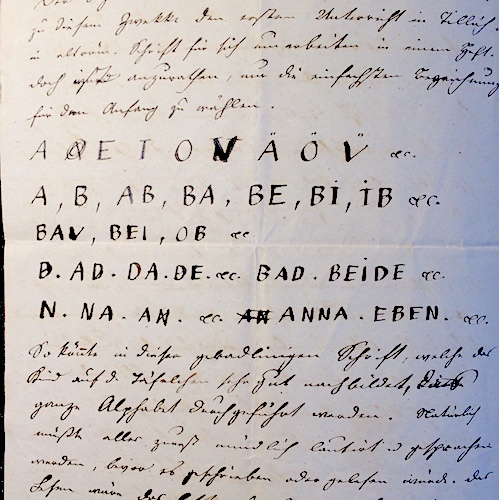 zu diesem Zwekke den ersten Unterricht in
in altröm. Schrift für sich um arbeiten in einem Heft.
doch anzurathen, nur die einfachsten Bezeichnung
für den Anfang zu wählen.
A E I O V Ä Ö V̈ &c.
A, B, AB, BA, BE, BI, IB &c.
BAV, BEI, OB &c
D. AD. DA. DE. &c. BAD. BEIDE &c.
N. NA. AN. &c. ANNA. EBEN. &c.
So könte in dieser Schrift, welche das
Kind auf d. Täfelchen sehr gut nachbildet, das
ganze Alphabet durchgeführt werden. Natürlich
müßte alles zuerst mündlich lautirt u gesprochen
werden, bevor es geschrieben oder gelesen würde. Das
Lesen wäre das